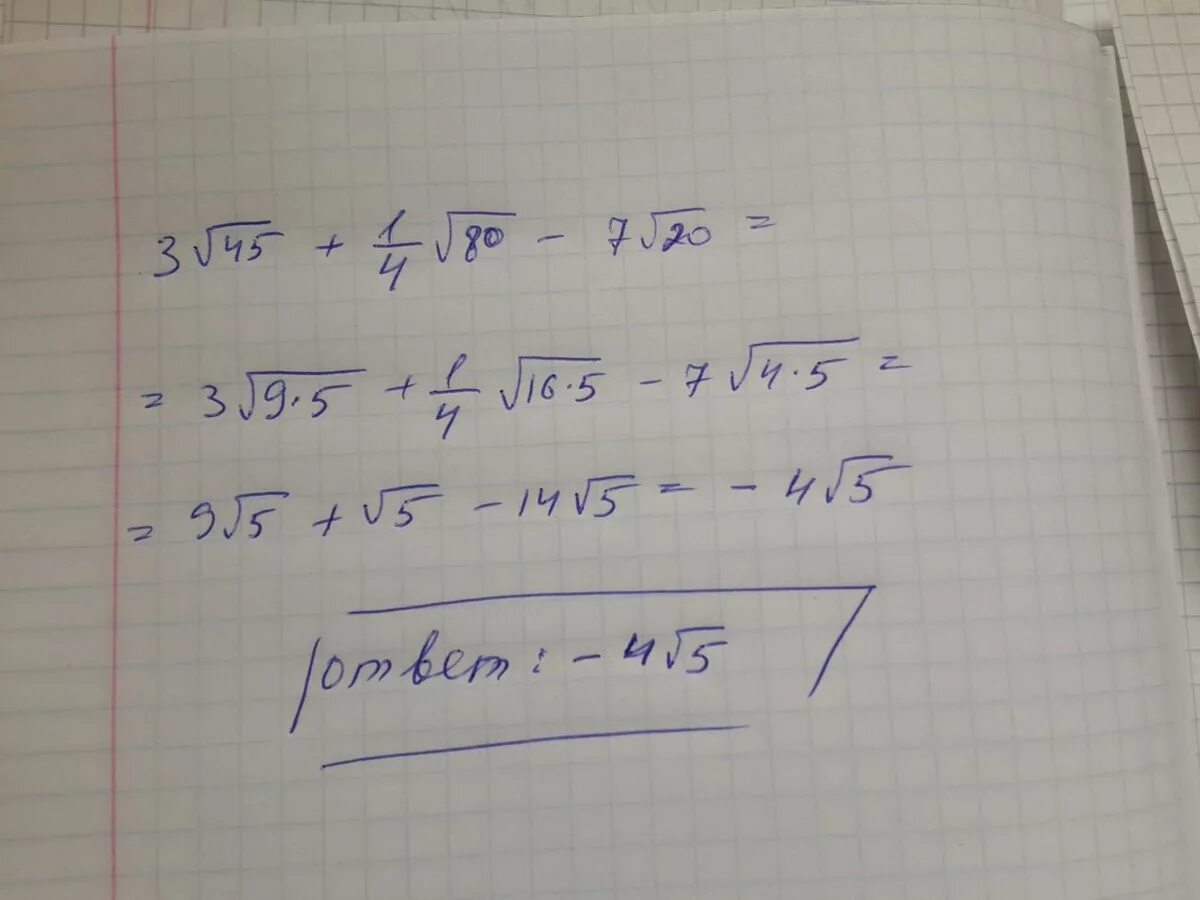 3√45 + 1/4 √80 - 7√20 =
= 3√9·5 + 1/4 √16·5 - 7√4·5 =
= 9√5 + √5 - 14√5 = - 4√5
ответ: - 4√5